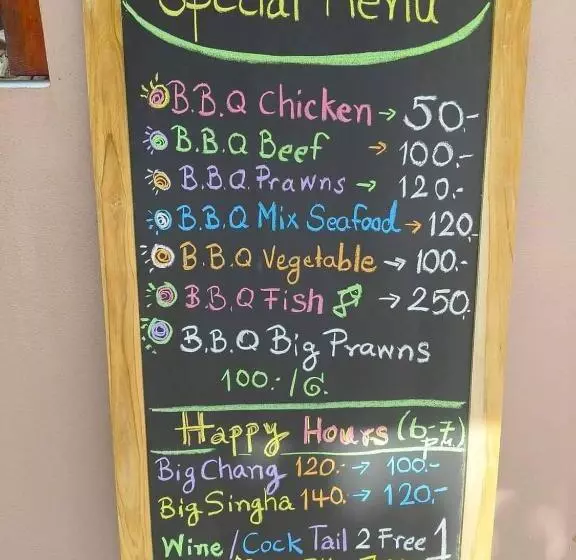 Special Menu
B.B.Q Chicken → 50.-
B.B.Q Beef → 100.-
B.B.Q Prawns → 120.-
B.B.Q Mix Seafood → 120.-
B.B.Q Vegetable → 100.-
B.B.Q Fish → 250.
B.B.Q Big Prawns
100.-/G.
Happy Hours (6-7 pm)
Big Chang 120.- → 100.-
Big Singha 140. → 120.-
Wine / Cock Tail 2 Free 1